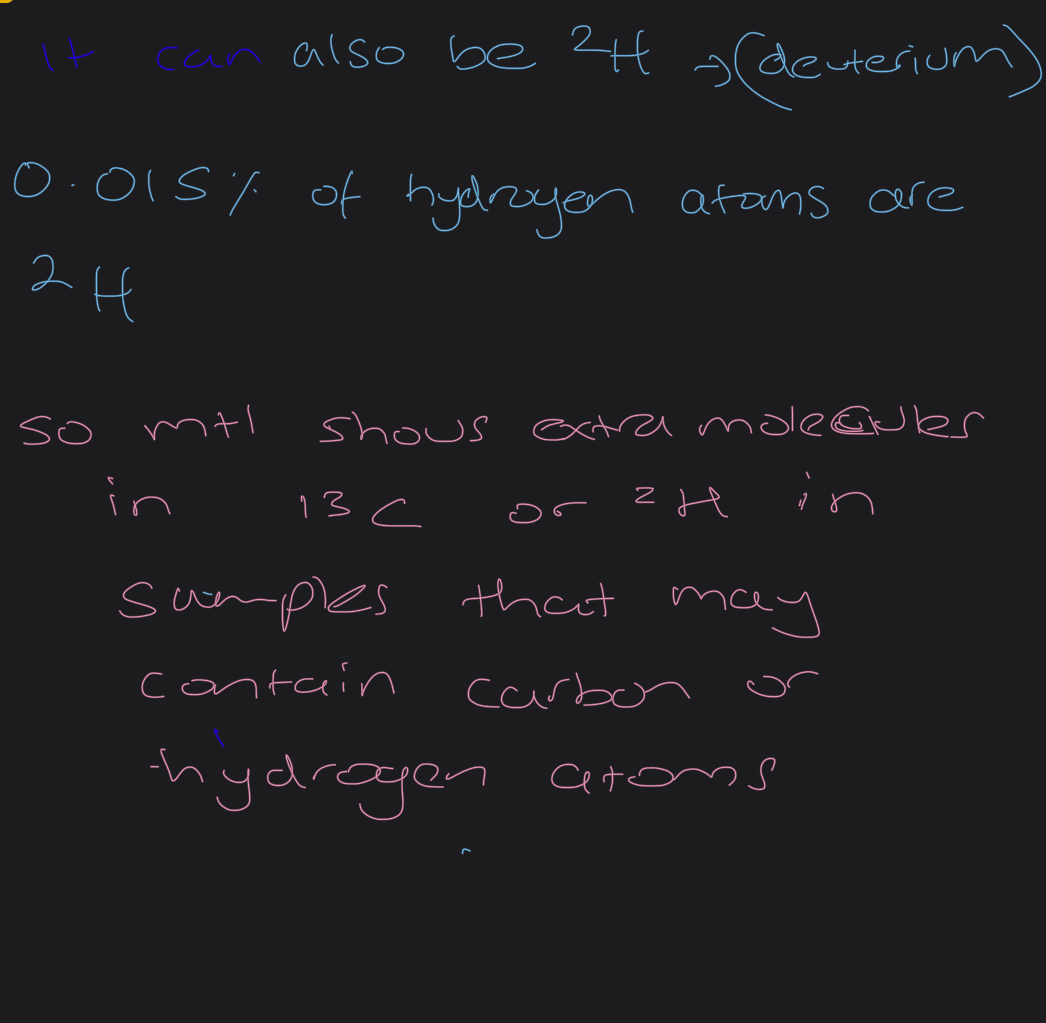 It can also be ²H → (deuterium)
0.015% of hydrogen atoms are
²H
so m+1 shows extra molecules
in ¹³C or ²H in
samples that may
contain carbon or
hydrogen atoms